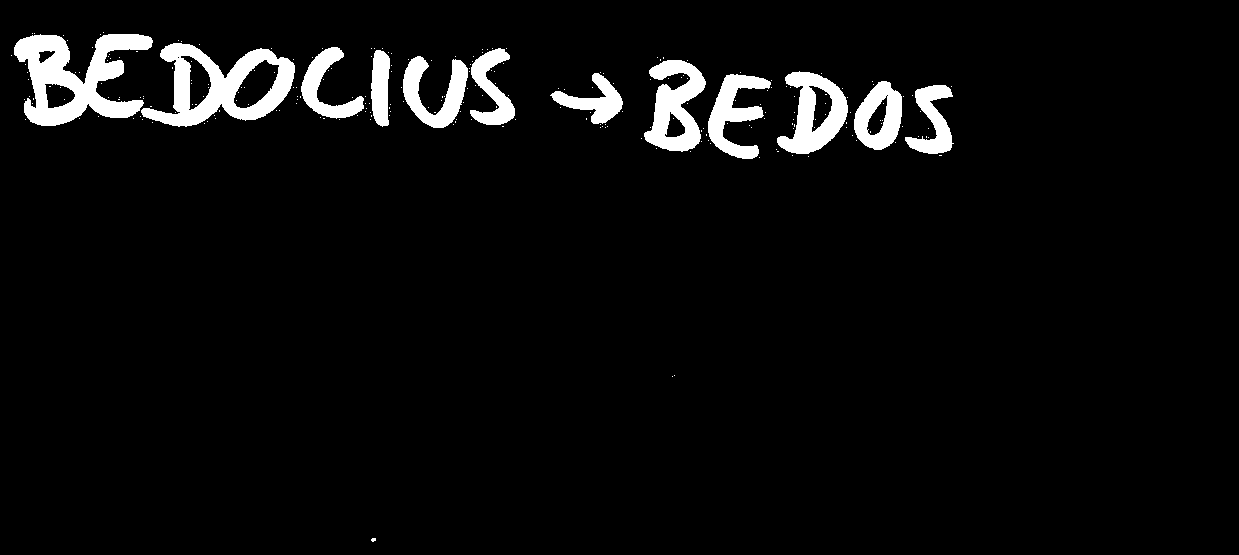 BEDOCIUS → BEDOS